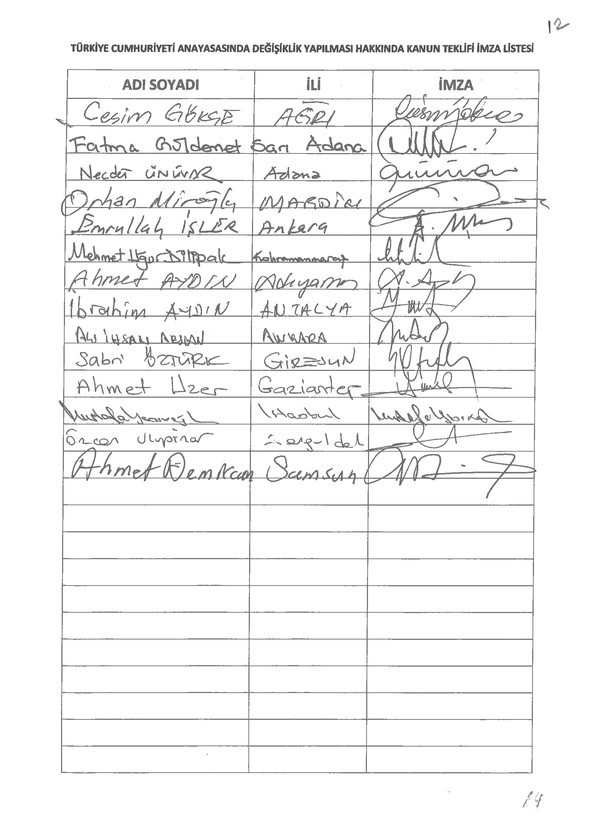 12
TÜRKİYE CUMHURİYETİ ANAYASASINDA DEĞİŞİKLİK YAPILMASI HAKKINDA KANUN TEKLİFİ İMZA LİSTESİ
ADI SOYADI İLİ İMZA
Cesim GÖKÇE AĞRI
Fatma Güldemet Sarı Adana
Necdet ÜNÜVAR Adana
Orhan Miroğlu MARDİN
Emrullah İŞLER Ankara
Mehmet Uğur Dilipak Kahramanmaraş
Ahmet AYDIN Adıyaman
İbrahim AYDIN ANTALYA
Ali İHSAN ARSLAN ANKARA
Sabri ÖZTÜRK GİRESUN
Ahmet Uzer Gaziantep
Mustafa İstanbul
Özcan Ulupınar Zonguldak
Ahmet Demircan Samsun
14